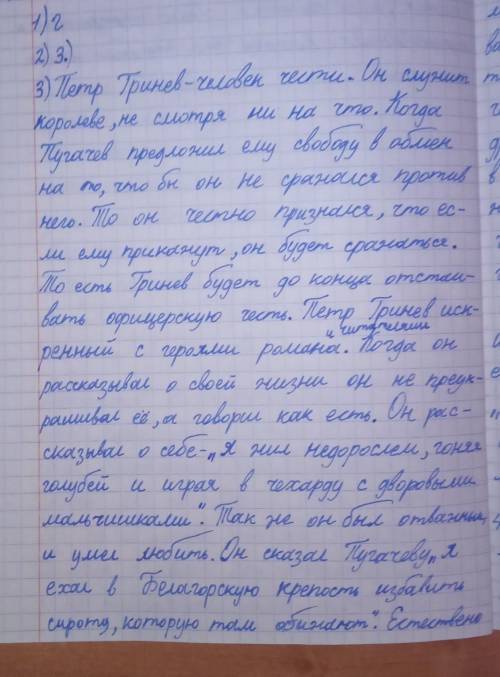 1) г
2) 3.)
3) Петр Гринев-человек чести. Он служит
королеве, не смотря ни на что. Когда
Пугачев предложил ему свободу в обмен
на то, что бы он не сражался против
него. То он честно признался, что ес-
ли ему прикажут, он будет сражаться.
То есть Гринев будет до конца отстаи-
вать офицерскую честь. Петр Гринев иск-
ренный с героями романа и читателями. Когда он
рассказывал о своей жизни он не преук-
рашивал её, а говорил как есть. Он рас-
сказывал о себе-„я жил недорослем, гоняя
голубей и играя в чехарду с дворовыми
мальчишками". Так же он был отважный
и умел любить. Он сказал Пугачеву „я
ехал в Белагорскую крепость избавить
сироту, которую там обижают". Естествено